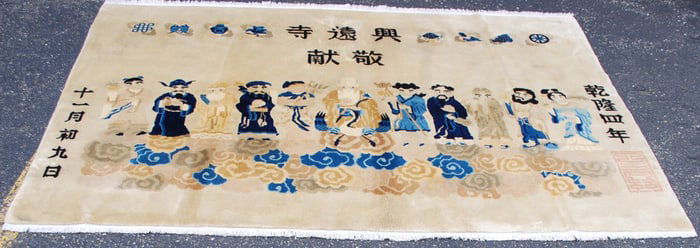 興遠寺
敬獻
乾隆四年
十一月初九日